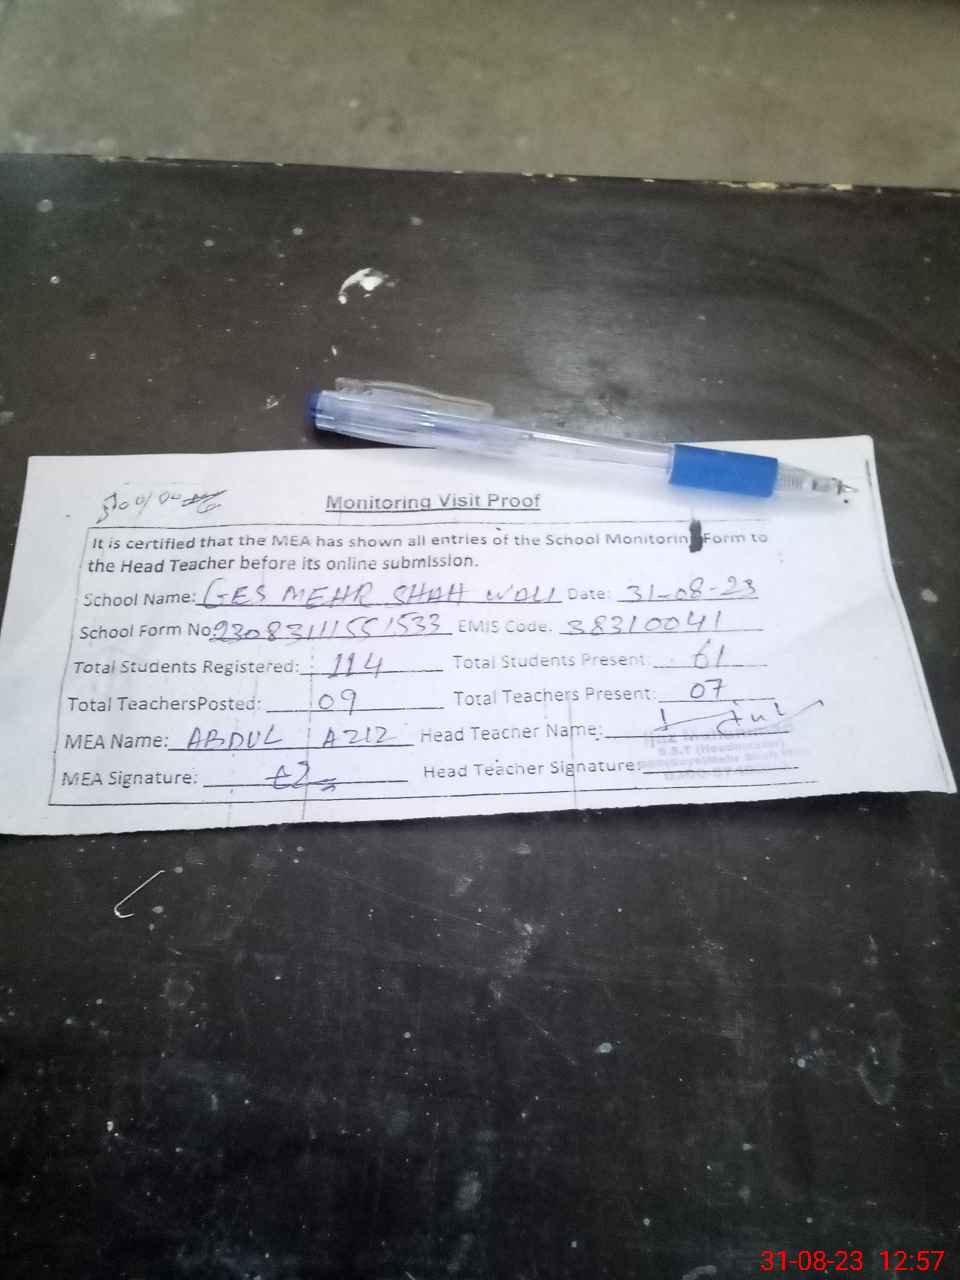 Monitoring Visit Proof
It is certified that the MEA has shown all entries of the School Monitoring Form to
the Head Teacher before its online submission.
School Name: GES MEHR SHAH WALI Date: 31-08-23
School Form No. 23083111551533 EMIS Code. 38310041
Total Students Registered: 114 Total Students Present: 61
Total TeachersPosted: 09 Total Teachers Present: 07
MEA Name: ABDUL AZIZ Head Teacher Name:
MEA Signature: Head Teacher Signature:
S.S.T (Headmaster)
31-08-23 12:57